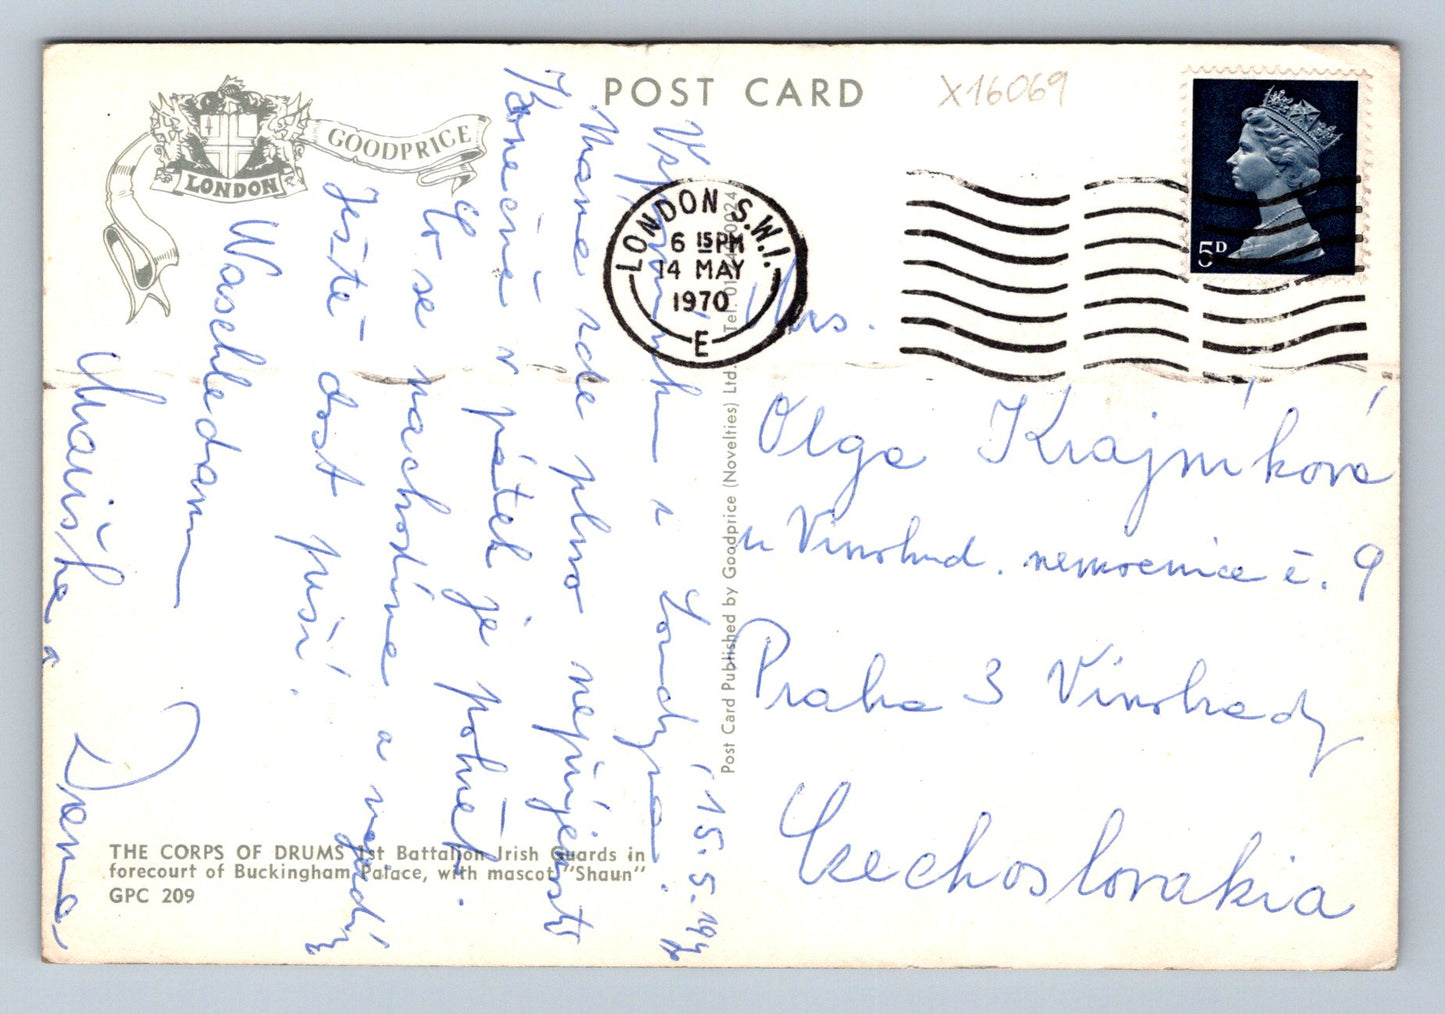 POST CARD
X16069
GOODPRICE
LONDON
LONDON S.W.1.
6 15 PM
14 MAY
1970
E
5D
Vzpomínku z Londýna. 15.5.197
Máme zde plno nepříjemností
Konečně v pátek je pohřeb.
Co se nachodíme a
Ještě dost prší.
Nashledanou
Maruška a
Mrs.
Olga Krajníková
u Vinohrad. nemocnice č. 9
Praha 3 Vinohrady
Czechoslovakia
THE CORPS OF DRUMS 1st Battalion Irish Guards in
forecourt of Buckingham Palace, with mascot "Shaun"
GPC 209
Post Card Published by Goodprice (Novelties) Ltd. Tel. 01